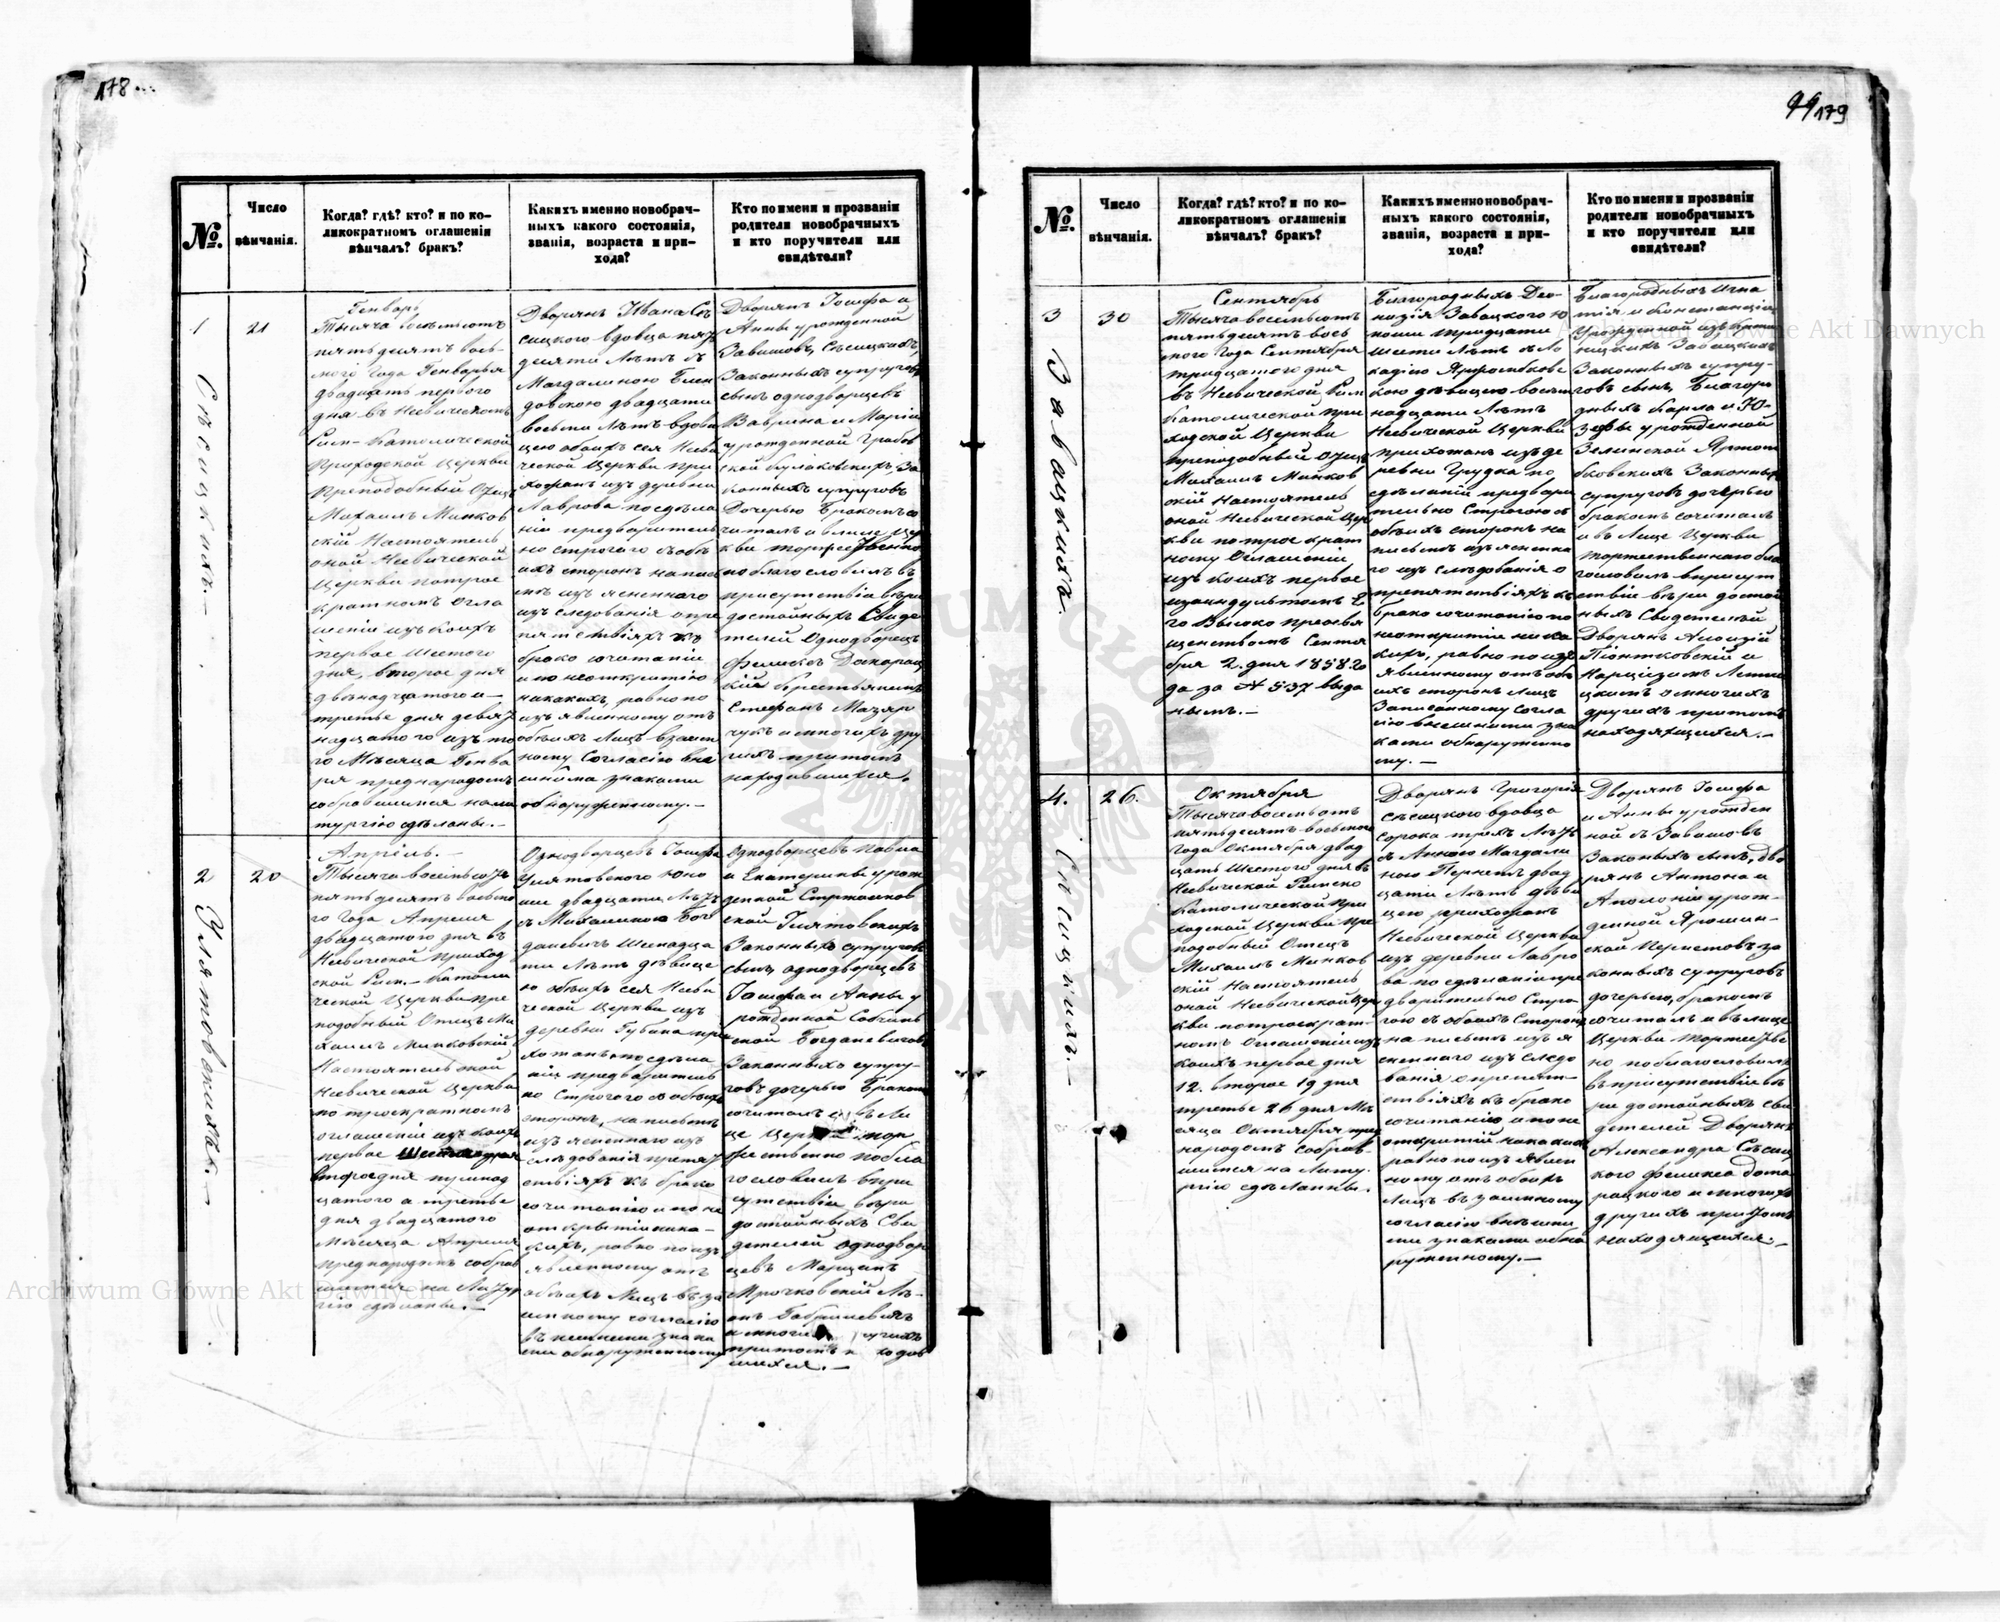 178
№.
Число
вѣнчанія.
Когда? гдѣ? кто? и по ко-
ликократномъ оглашеніи
вѣнчалъ? бракъ?
Какихъ именно новобрач-
ныхъ какого состоянія,
званія, возраста и при-
хода?
Кто по имени и прозваніи
родители новобрачныхъ
и кто поручители или
свидѣтели?
1
21
Генварь
Тысяча восемьсотъ
пятьдесятъ вось-
мого Года Генваря
двадцать перваго
дня въ Невическомъ
Рим-Католической
Приходской Церкви
Преподобный Отецъ
Михаилъ Минков
скій Настоятель
оной Невической
Церкви по трое
кратномъ Огла
шеніи изъ коихъ
первое Шестого
дня, второе дня
двѣнадцатого а
третье дня девят
надцатого
го Мѣсяца Генва
ря предъ народомъ
собравшимся на ли
тургію сдѣланы.—
Дворянъ Ивана Съ
сицкого вдовца пять
десяти Лѣтъ съ
Магдалиною
двадцати
восьми Лѣтъ вдови
цею обоихъ сея Неви
ческой Церкви при
хожанъ изъ деревни
Лаврова по сдѣла
ніи предваритель
но строгого съ обѣ
ихъ сторонъ на пись
мѣ изъясненного
изслѣдованія о пре
пятствіяхъ къ
бракосочитанію
и по неоткрытію
никакихъ, равно по
изъявленному отъ
обѣихъ Лицъ взаим
ному Согласію внѣ
шними знаками
обнаруженному.—
Дворянъ Іосифа и
Анны урожденной
Завишовъ, Съсицкихъ,
Законныхъ супруговъ
сына однодворцевъ
и Маріи
урожденной Грабов
ской За
конныхъ супруговъ
Дочерью Бракомъ со
читалъ и в лице Цер
кви торжественно
поблагословилъ въ
присутствіи вѣри
достойныхъ Свидѣ
телей Однодворцевъ
кій Крестьянинъ
Стефанъ Мазяр
чукъ и многихъ дру
гихъ притомъ
находившихся.
Съсицкихъ.—
2
20
Апрѣль.—
Тысяча восемьсотъ
пятьдесятъ восьмо
го Года Апреля
двадцатого дня въ
Невической Приход
ской Рим.-Католи
ческой Церкви пре
подобный Отецъ Ми
хаилъ Минковскій
Настоятель оной
Невической Церкви
по троекратномъ
оглашеніи изъ коихъ
первое
второе дня
цатого а третье
дня двадцатого
Мѣсяца Апреля
предъ народомъ собрав
шимся на Литур
гію сдѣланы.—
Однодворцевъ Іосифа
Улятовского Юно
ши двадцати Лѣтъ
съ Михалиною Бог
даневичъ Шестнадца
ти Лѣтъ дѣвице
ю обѣихъ сея Неви
ческой Церкви изъ
деревни Губина при
хожанъ по сдѣла
ніи предваритель
но Строгого съ обѣихъ
сторонъ, на письмѣ
изъясненнаго из
слѣдованія препят
ствіяхъ къ брако
сочитанію и по не
открытіи ника-
кихъ, равно по изъ
явленному отъ
обѣихъ Лицъ вза
имному согласію
внѣшними знака
ми обнаруженному
Однодворцевъ Павла
и Екатерины урож
денной
ской Улятовскихъ
Законныхъ супруговъ
сына однодворцевъ
Іосифа и Анны у
рожденной
ской Богданевичовъ
Законныхъ супру-
говъ дочерью Бракомъ
сочиталъ и въ Ли
це Церкви тор
жественно побла
гословилъ в при
сутствіи вѣри
достойныхъ Сви
дѣтелей однодвор
цевъ Марцинъ
Мрочковскій
и многихъ
притомъ
шихся.—
Улятовскихъ.—
99 179
№.
Число
вѣнчанія.
Когда? гдѣ? кто? и по ко-
ликократномъ оглашеніи
вѣнчалъ? бракъ?
Какихъ именно новобрач-
ныхъ какого состоянія,
званія, возраста и при-
хода?
Кто по имени и прозваніи
родители новобрачныхъ
и кто поручители или
свидѣтели?
3
30
Сентябрь
Тысяча восемьсотъ
пятьдесятъ вось
мого Года Сентября
тридцатого дня
въ Невической Рим
Католической При
ходской Церкви
преподобный Отецъ
Михаилъ Минков
скій Настоятель
оной Невической Цер
кви по трое крат
ному Оглашеніи
изъ коихъ первое
го Высоко преосвя
щенствомъ Сентя
бря 2. дня 1858 го
да за № 537 выда
нымъ.—
Благородныхъ Део-
низія Завацкого Ю
ноши тридцати
шести Лѣтъ съ Ле
кадіею
кою дѣвицею восем
надцати Лѣтъ
Невической Церкви
прихожанъ изъ де
ревни Грудка по
сдѣланіи предвари
тельно Строгого съ
обѣихъ сторонъ на
письмѣ изъясненна
го изслѣдованія о
препятствіяхъ къ
брако сочитанію по
неоткрытіи ника
кихъ, равно по изъ
явленному отъ обѣ
ихъ сторонъ Лицъ
Записанному Согла
сію внешними зна
ками обнаруженно
му.—
Благородныхъ Игна
тія и Констанціи
Урожденной изъ
Завацкихъ
Законныхъ супру-
говъ сына, Благоро
дныхъ Карла и Ю-
зефы урожденной
Зелинской
Законныхъ
супруговъ дочерью
бракомъ сочиталъ
и въ Лице Церкви
торжественно бла
гословилъ в присут
ствіе вѣри достой
ныхъ Свидѣтелей
Дворянъ Алоизій
Піонтковскій и
цкимъ и многихъ
другихъ притомъ
находящихся.—
Завацкихъ.
4.
26.
Октября
Тысяча восемьсотъ
пятьдесятъ восьмого
Года Октября двад
цать Шестого дня въ
Невической Римско
Католической При
ходской Церкви Пре
подобный Отецъ
Михаилъ Минков
скій Настоятель
оной Невической Цер
кви по троекрат-
номъ Оглашеніи изъ
коихъ первое дня
12. второе 19 дня
третье 26 дня Мѣ
сяца Октября предъ
народомъ собрав
шимся на Литу-
ргію сдѣланны.—
Дворянъ Григорія
Съсицкого вдовца
Сорока трехъ Лѣтъ
съ Анною Магдали
ною Пернетъ двад
цати Лѣтъ дѣви
цею прихожанъ
Невической Церкви
изъ деревни Лавро
ва по сдѣланіи пре
дварительно Стро-
гого съ обѣихъ Сторонъ
на письмѣ изъя
сненного изслѣдо
ванія о препят-
ствіяхъ къ брако
сочитанію и по не
открытіи никакихъ
равно по изъявлен
ному отъ обоихъ
Лицъ взаимному
согласію внѣшни
ми знаками обна
руженному.—
Дворянъ Іосифа
и Анны урожден
ной съ Завишовъ
Законныхъ сынъ, дво
рянъ Антона и
Аполоніи урож-
денной Яромин-
ской Пернетовъ за
конныхъ супруговъ
дочерью, бракомъ
сочиталъ и въ лице
Церкви Торжестве
но поблагословилъ
въ присутствіе вѣ
ри достойныхъ Сви
дѣтелей Дворянъ
Александра Съсиц
кого Феликса Дота
рацкого и многихъ
другихъ притомъ
находящихся.—
Съсицкихъ.—
Archiwum Główne Akt Dawnych
Archiwum Główne Akt Dawnych
ARCHIWUM GŁÓWNE AKT DAWNYCH